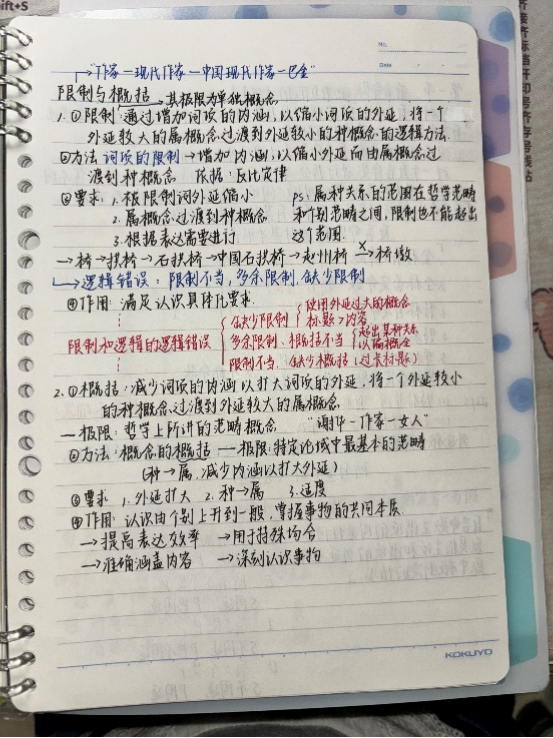 ift+S
No.
Date
→"作家—现代作家—中国现代作家—巴金"
限制与概括 → 其极限为单独概念
1. ①限制:通过增加词项的内涵,以缩小词项的外延,将一个
外延较大的属概念过渡到外延较小的种概念的逻辑方法.
②方法 词项的限制 → 增加内涵,以缩小外延而由属概念过
渡到种概念 依据:反比定律
③要求:1.被限制词外延缩小 ps:属种关系的范围在哲学范畴
2.属概念过渡到种概念 和个别范畴之间,限制也不能超出
3.根据表达需要进行 这个范围.
→桥→拱桥→石拱桥→中国石拱桥→赵州桥 X→ 桥墩
→逻辑错误:限制不当,多余限制,缺少限制
④作用:满足认识具体化要求.
缺少限制 使用外延过大的概念
标题>内容
限制和逻辑的逻辑错误 多余限制.概括不当 超出某种关系
以偏概全
限制不当.缺少概括(过长标题)
2.①概括:减少词项的内涵以扩大词项的外延,将一个外延较小
的种概念过渡到外延较大的属概念
—极限:哲学上所讲的范畴概念 "谢华—作家—女人"
②方法:概念的概括—极限:特定论域中最基本的范畴
(种→属,减少内涵以扩大外延)
③要求 1.外延扩大 2.种→属 3.适度
④作用:认识由个别上升到一般,掌握事物的共同本质.
→提高表达效率 →用于特殊场合
→准确涵盖内容 →深刻认识事物
KOKUYO